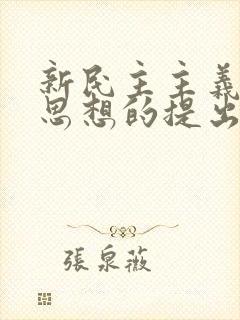 新民主主義
思想的提出
張泉薇